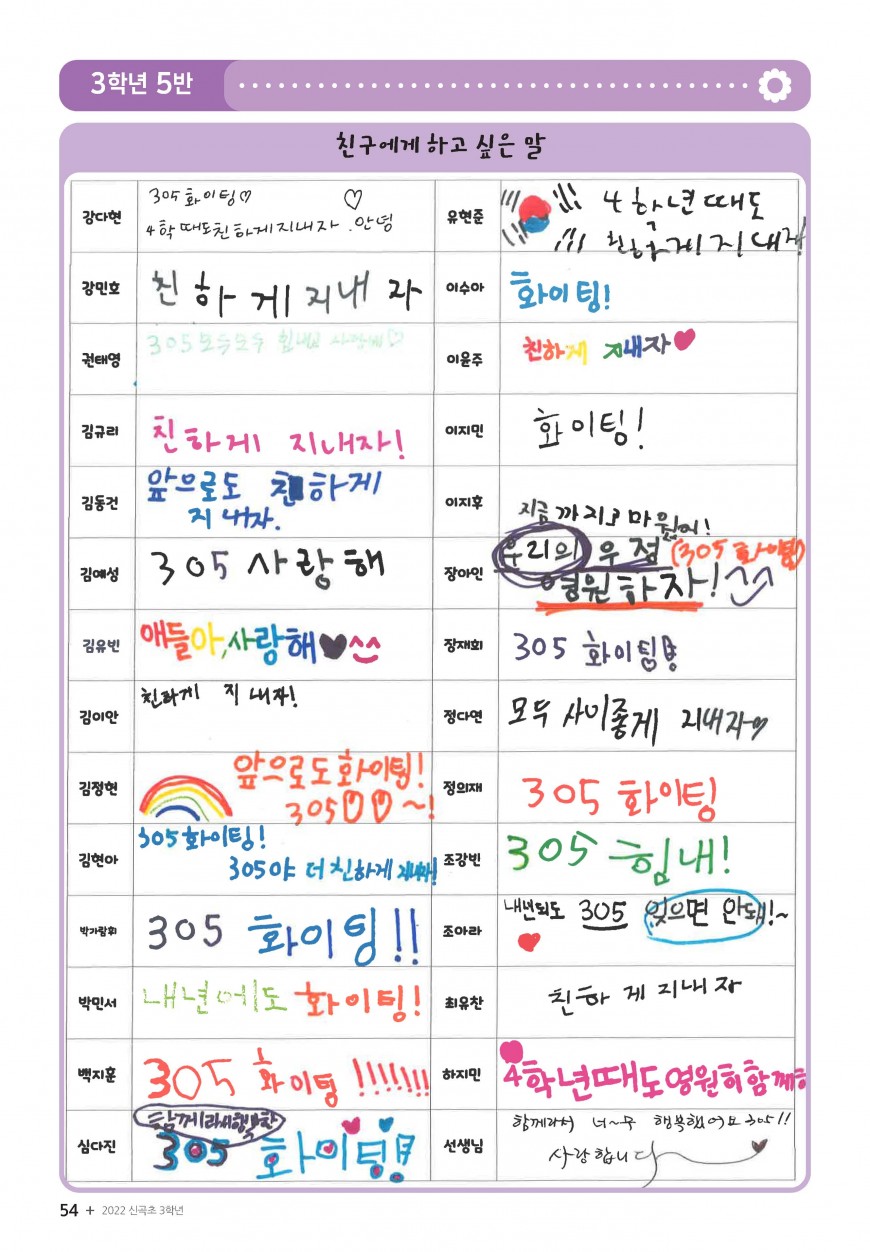 3학년 5반
친구에게 하고 싶은 말
강다현
305 화이팅♡
4학때도친하게지내자.안녕
강민호
친하게지내자
권태영
305모두모두 힘내고 사랑해♡
김규리
친하게 지내자!
김동건
앞으로도 친하게
지내자.
김예성
305 사랑해
김유빈
애들아,사랑해♥^^
김이안
친하게 지내자!
김정현
앞으로도화이팅!
305♡♡~!
김현아
305화이팅!
305야 더 친하게 지내자!
박가람휘
305 화이팅!!
박민서
내년에도 화이팅!
백지훈
305 화이팅!!!!!!!
심다진
함께라서행복한
305 화이팅!
유현준
4학년때도
친하게지내자!
이수아
화이팅!
이윤주
친하게 지내자♥
이지민
화이팅!
이지후
지금까지고마웠어!
장아인
우리의 우정 (305 화이팅)
영원하자!
장재희
305 화이팅!
정다연
모두 사이좋게 지내자♡
정의재
305 화이팅
조강빈
305 힘내!
조아라
내년되도 305 잊으면 안돼!~
최유찬
친하게지내자
하지민
4학년때도영원히함께해
선생님
함께라서 너~무 행복했어요 305!!
사랑합니다
54 + 2022 신곡초 3학년